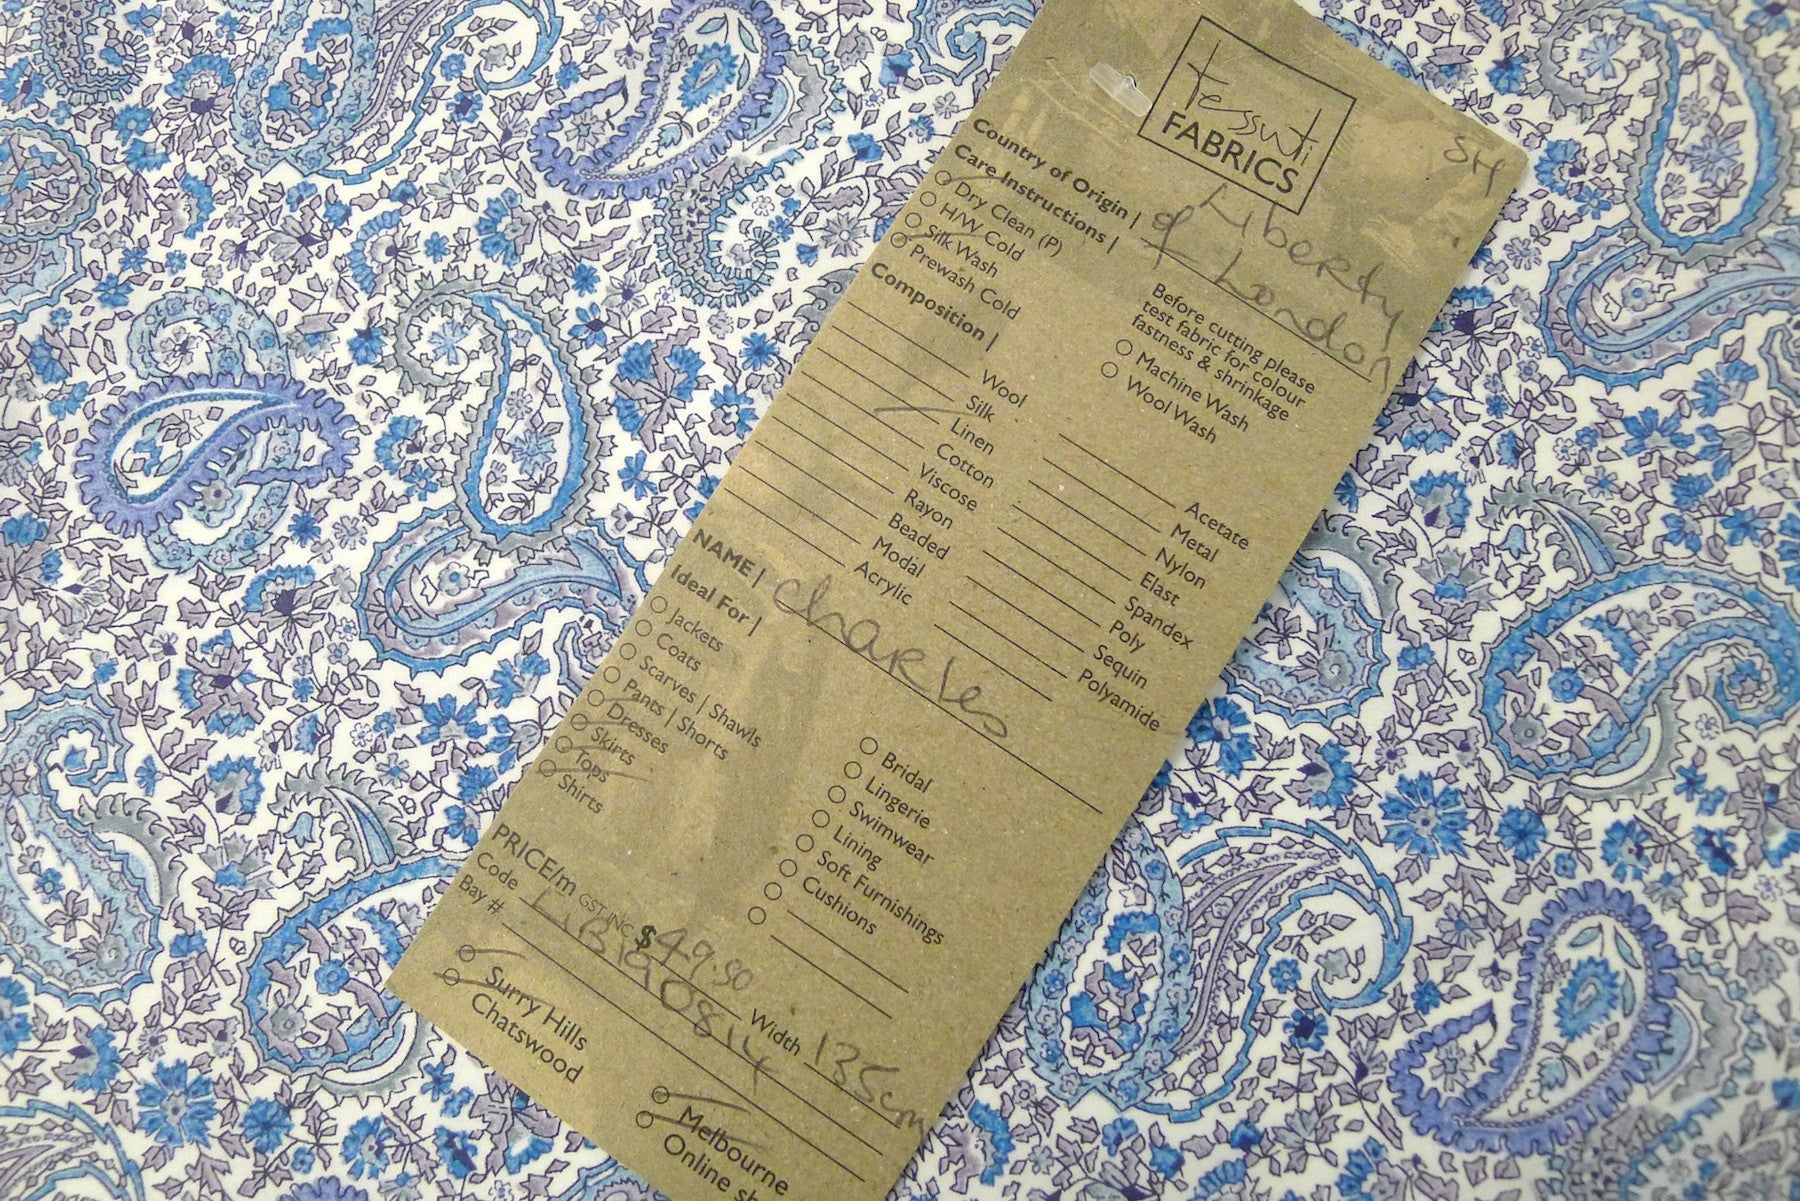 Tessuti
FABRICS
SH
Country of Origin | Liberty
of London
Care Instructions |
Dry Clean (P)
H/W Cold
Silk Wash
Prewash Cold
Before cutting please
test fabric for colour
fastness & shrinkage
Machine Wash
Wool Wash
Composition |
Wool
Silk
Linen
Cotton
Viscose
Rayon
Beaded
Modal
Acrylic
Acetate
Metal
Nylon
Elast
Spandex
Poly
Sequin
Polyamide
NAME | Charles
Ideal For |
Jackets
Coats
Scarves | Shawls
Pants | Shorts
Dresses
Skirts
Tops
Shirts
Bridal
Lingerie
Swimwear
Lining
Soft Furnishings
Cushions
PRICE/m GST INC $49.50 Width 135cm
Code LIB190814
Bay #
Surry Hills
Chatswood
Melbourne
Online sh